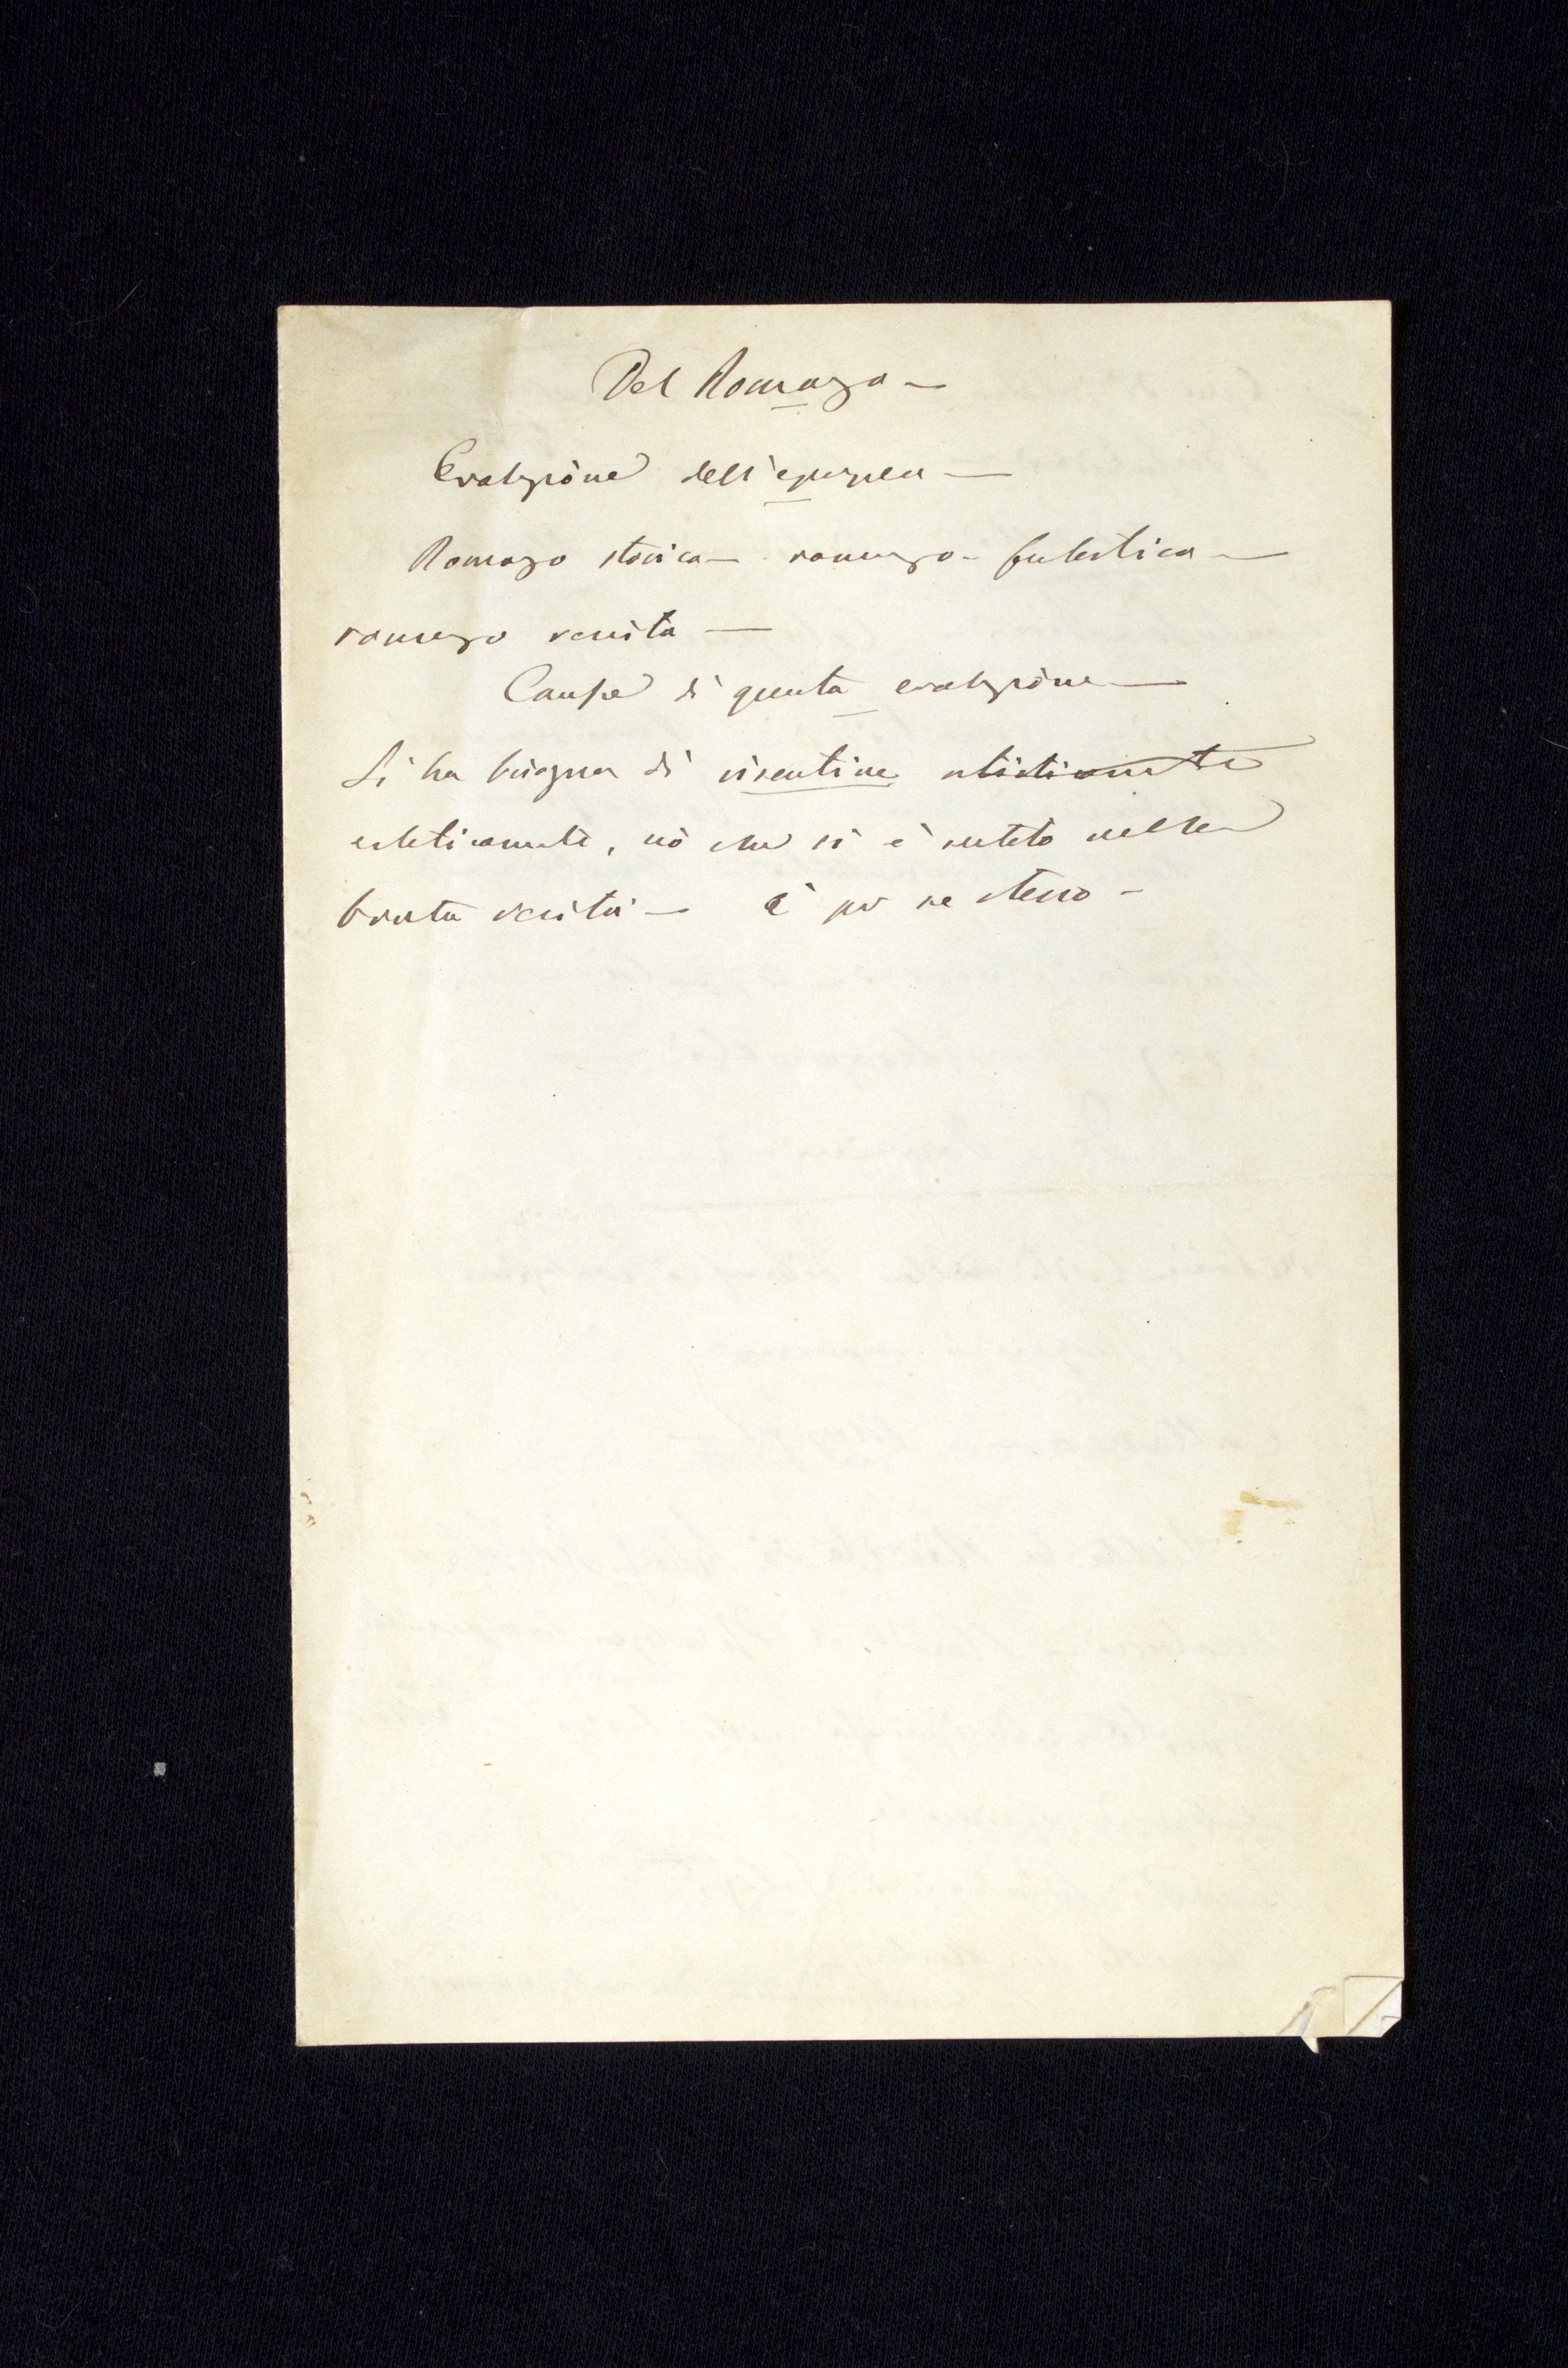 Del Romazo —
Evoluzione dell'epopea —
Romazo storico — romazo fantastico —
romazo verista —
Cause di questa evoluzione —
Si ha bisogno di risentire
esteticamente, ciò che si è sentito nella
bruta verità — È per se stesso —